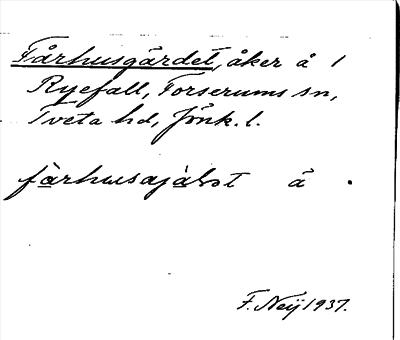 Fårhusgärdet, åker å 1
Ryefall, Forserums sn,
Tveta hd, Jönk. l.
å
F. Neij 1937.